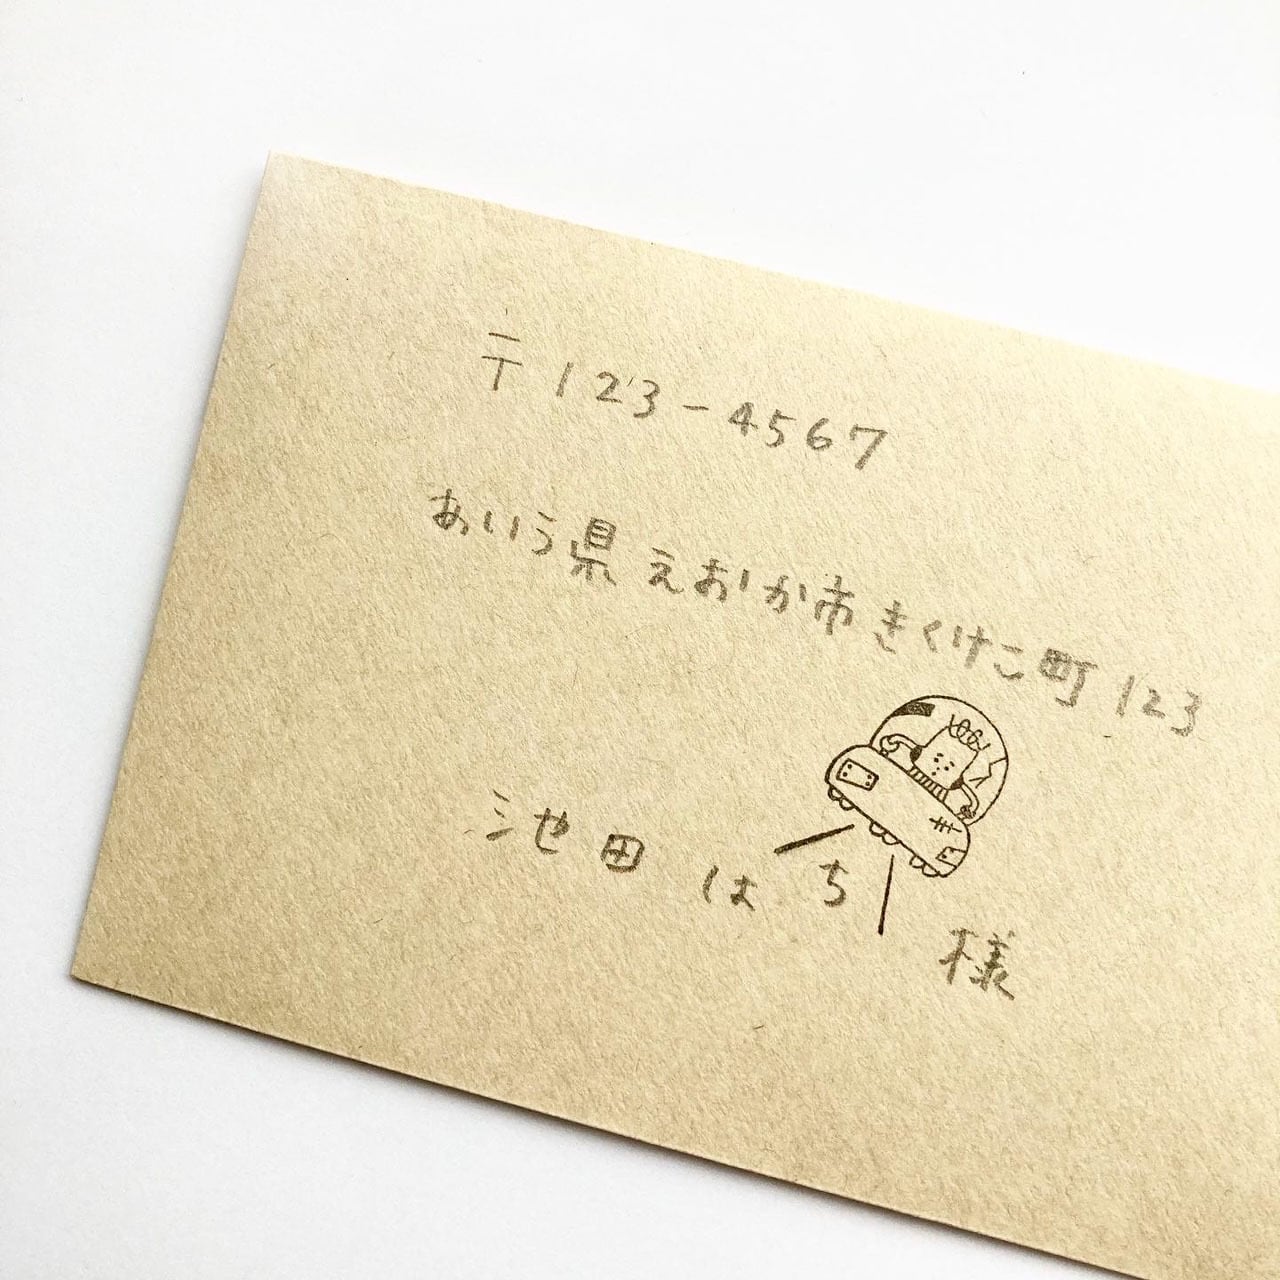 〒123-4567
あいう県えおか市きくけこ町123
池田 はち 様